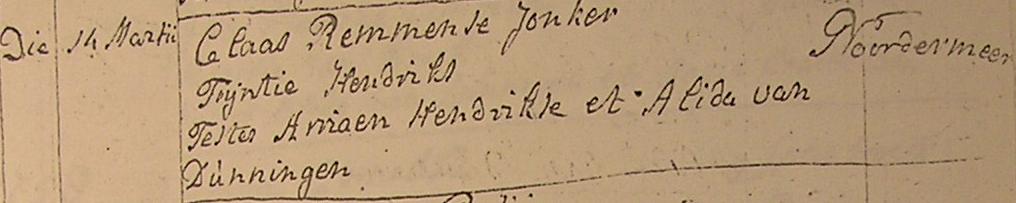 Die 14 Martii Claas Remmense Jonker Noordermeer
Trijntie Hendriks
Testes Ariaen Hendrikse et Alida van
Dunningen